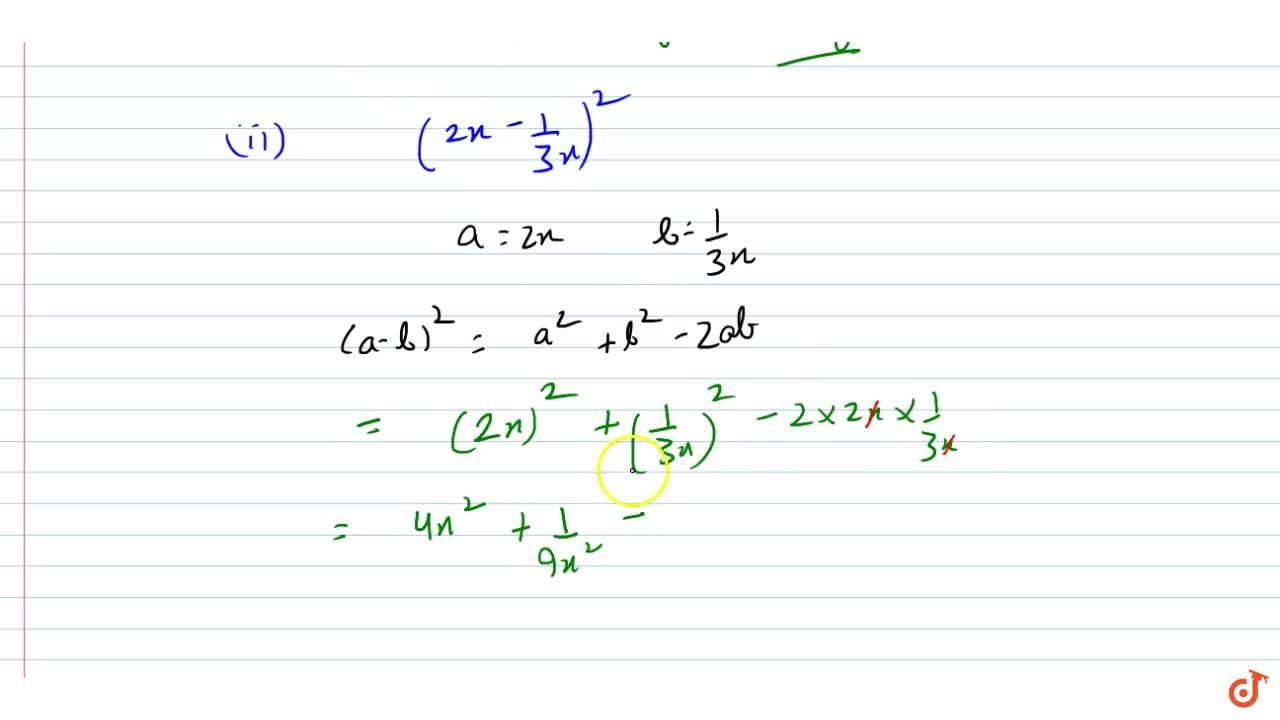 (ii) (2x - 1/3x)²
a = 2x b = 1/3x
(a-b)² = a² + b² - 2ab
= (2x)² + (1/3x)² - 2 × 2x × 1/3x
= 4x² + 1/9x² -